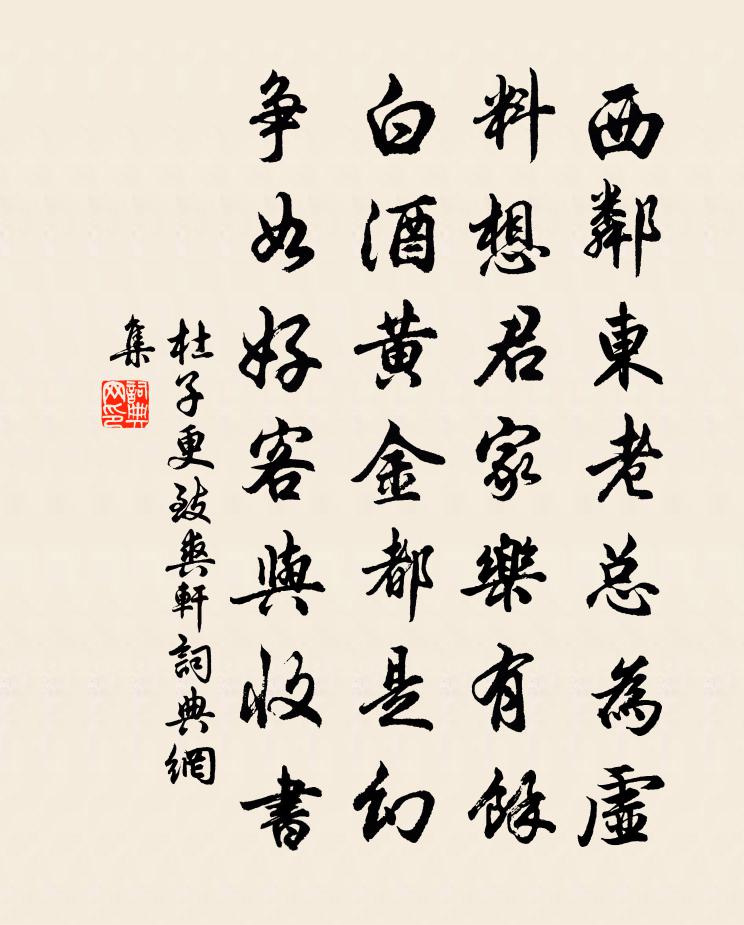 西鄰東老总為虛
料想君家樂有餘
白酒黃金都是幻
争如好客與收書
杜子更致爽軒詞典網
集
詞典网印